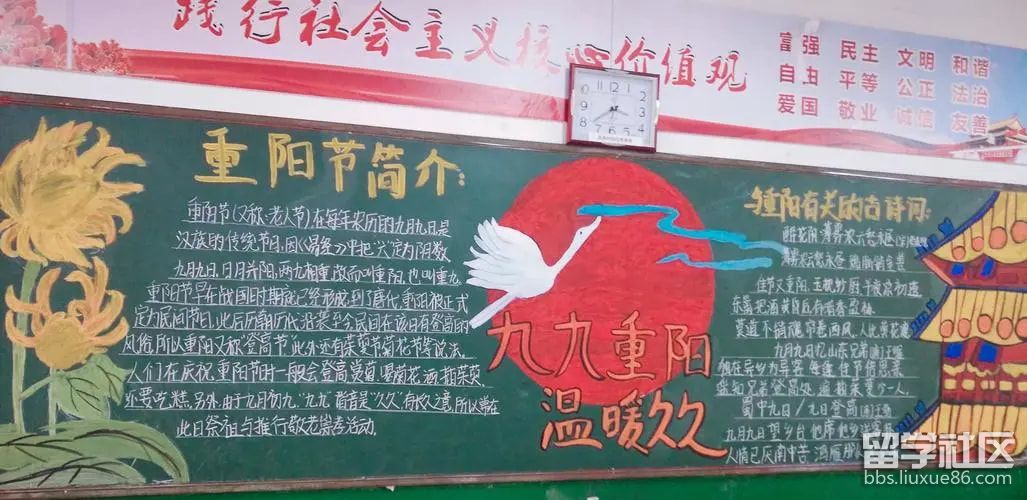 践行社会主义核心价值观
富强 民主 文明 和谐
自由 平等 公正 法治
爱国 敬业 诚信 友善
重阳节简介:
重阳节(又称:老人节)在每年农历的九月九日是
汉族的传统节日,因《易经》中把"六"定为阴数
九月九日,日月并阳,两九相重,故而叫重阳,也叫重九,
重阳节早在战国时期就已经形成,到了唐代重阳被正式
定为民间节日,此后历朝历代沿袭至今民间在该日有登高的
风俗,所以重阳又称登高节,此外还有茱萸节菊花节等说法。
人们在庆祝重阳节时一般会登高赏菊,喝菊花酒,插茱萸,
还要吃糕,另外,由于九月初九"九九"谐音是"久久"有长久之意所以常在
此日祭祖与推行敬老崇孝活动。
九九重阳
温暖久久
与重阳有关的古诗词:
醉花阴 薄雾浓云愁永昼
薄雾浓云愁永昼
佳节又重阳,玉枕纱厨,半夜凉初透
东篱把酒黄昏后有暗香盈袖
莫道不销魂帘卷西风,人比黄花瘦
九月九日忆山东兄弟
独在异乡为异客每逢佳节倍思亲
遥知兄弟登高处遍插茱萸少一人
蜀中九日/九日登高
九月九日望乡台他席他乡
人情已厌南中苦鸿雁那
留学社区
bbs.liuxue86.com